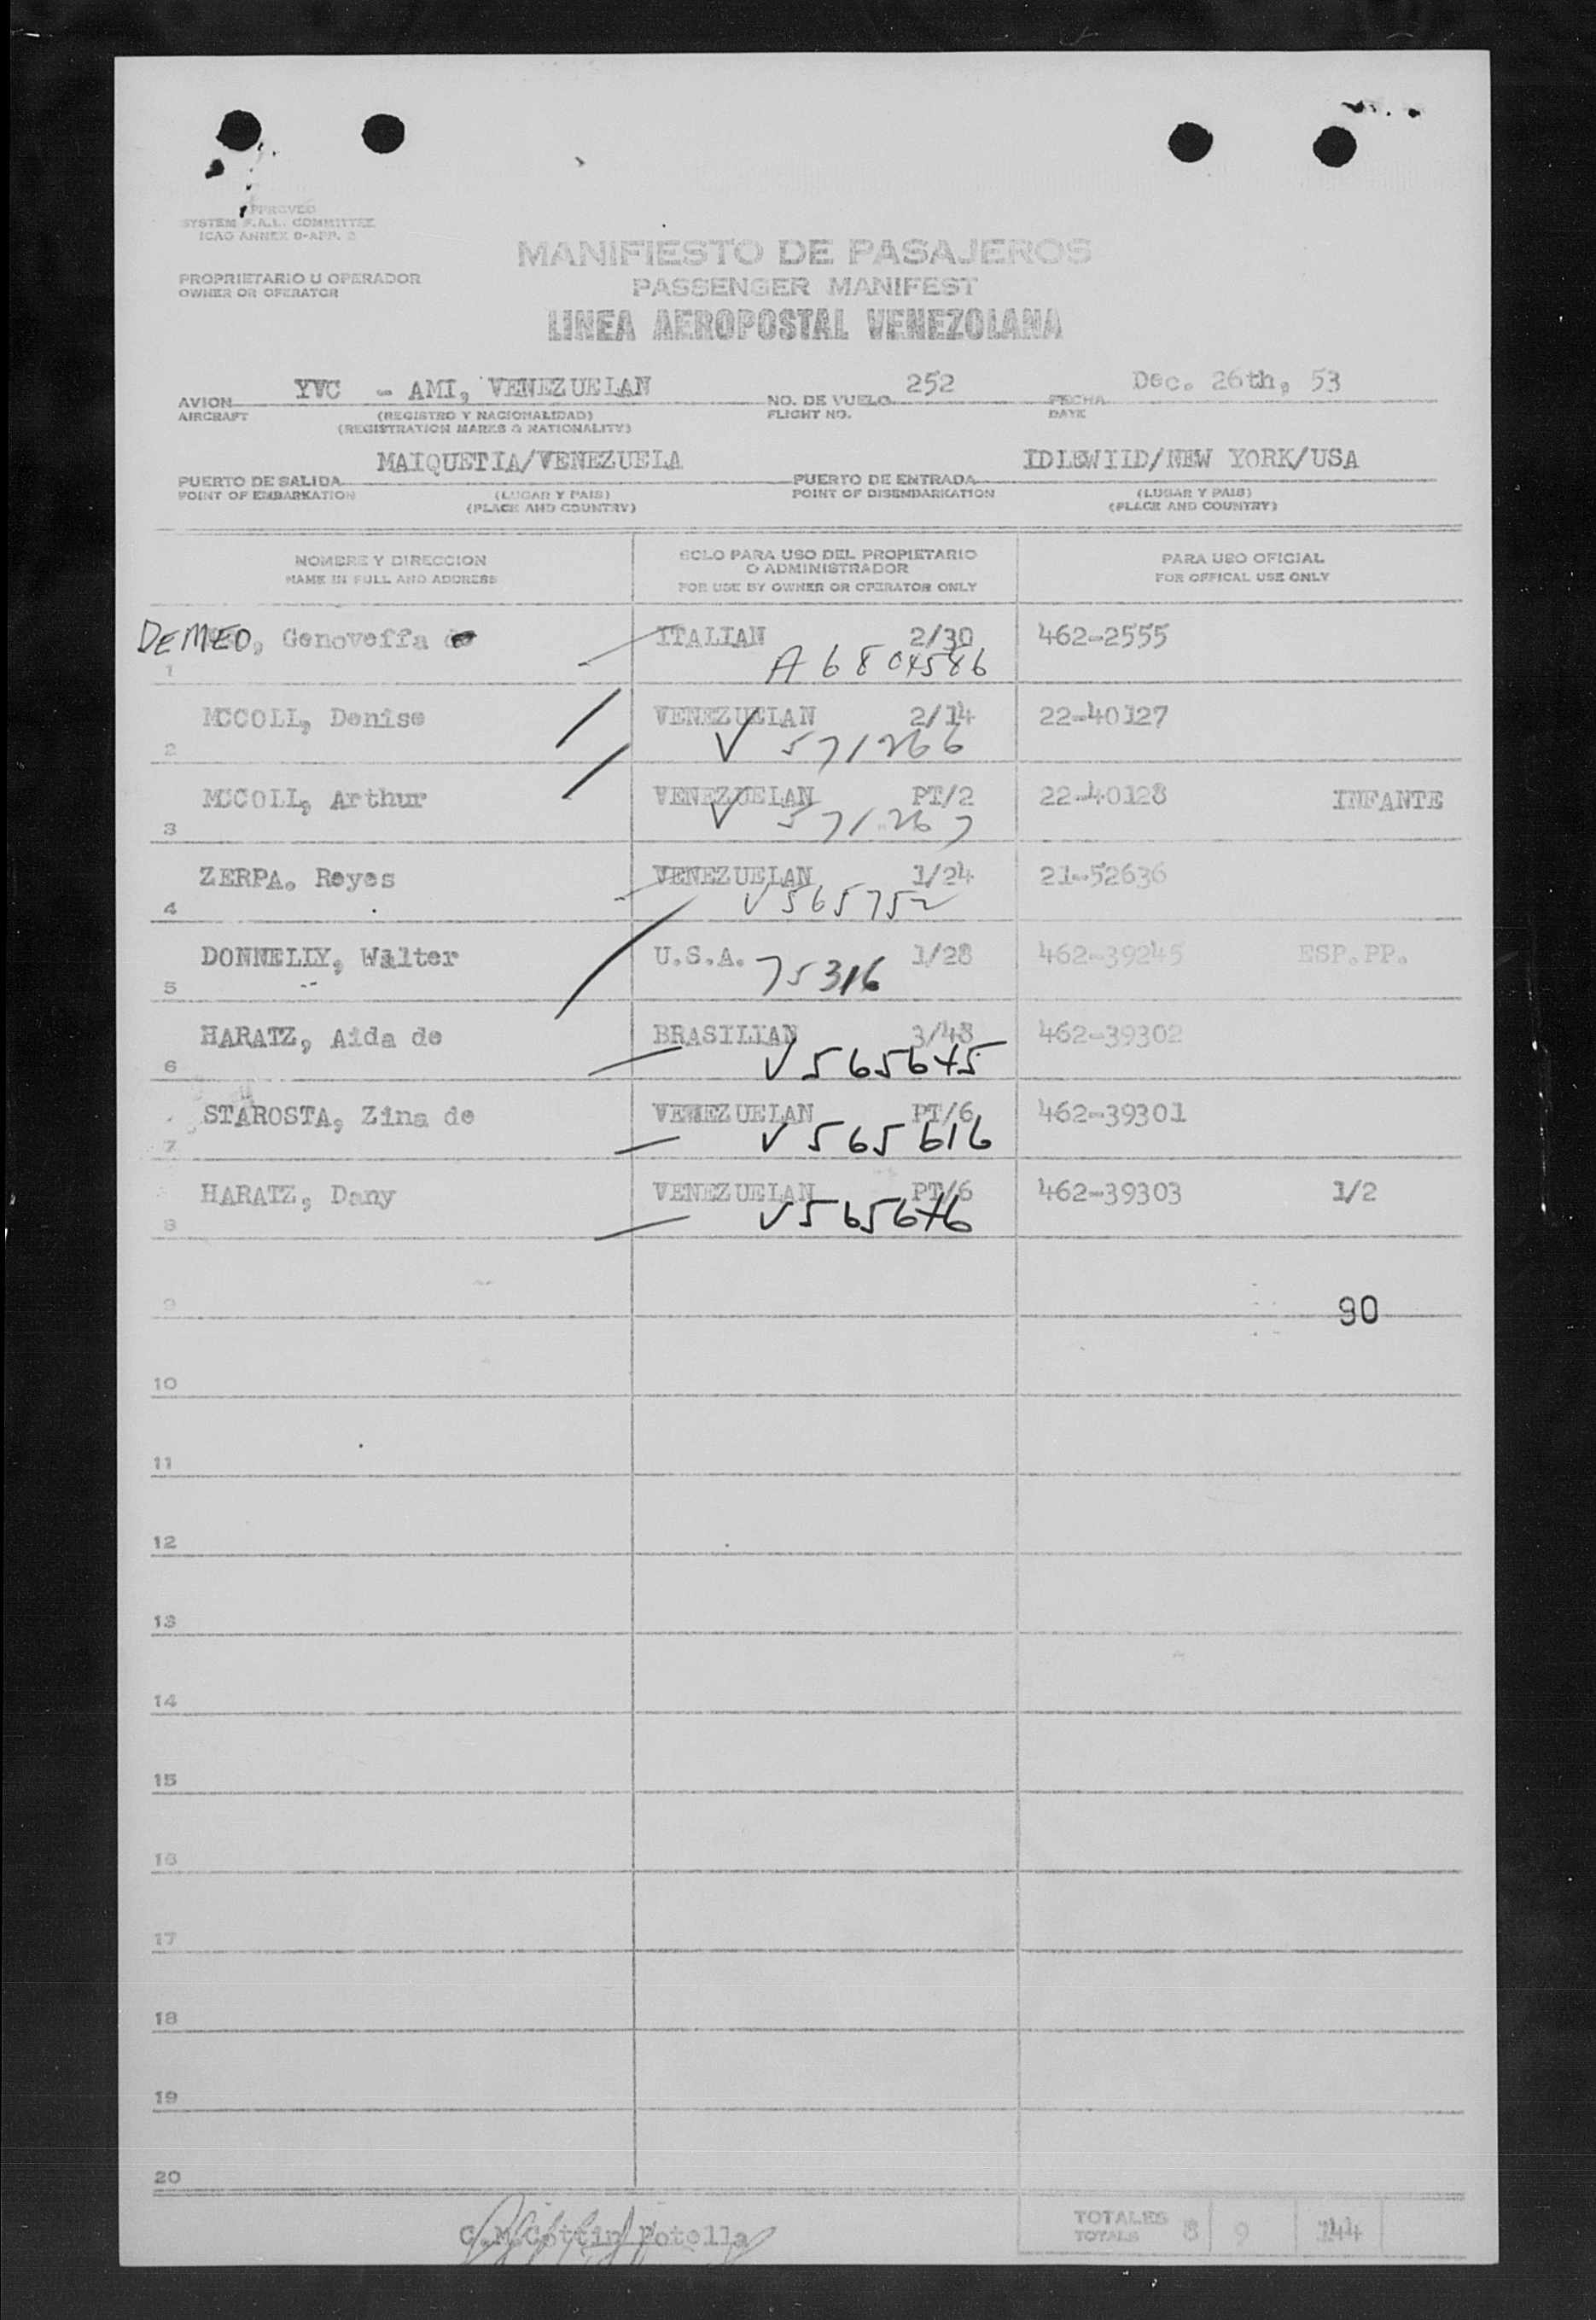 APPROVED
SYSTEM F.A.L. COMMITTEE
ICAO ANNEX 9-APP. 2
MANIFIESTO DE PASAJEROS
PROPRIETARIO U OPERADOR
OWNER OR OPERATOR
PASSENGER MANIFEST
LINEA AEROPOSTAL VENEZOLANA
AVION YVC - AMI, VENEZUELAN NO. DE VUELO 252 FECHA Dec. 26th, 53
AIRCRAFT (REGISTRO Y NACIONALIDAD) FLIGHT NO. DATE
(REGISTRATION MARKS & NATIONALITY)
PUERTO DE SALIDA MAIQUETIA/VENEZUELA PUERTO DE ENTRADA IDLEWIID/NEW YORK/USA
POINT OF EMBARKATION (LUGAR Y PAIS) POINT OF DISEMBARKATION (LUGAR Y PAIS)
(PLACE AND COUNTRY) (PLACE AND COUNTRY)
NOMBRE Y DIRECCION SOLO PARA USO DEL PROPIETARIO PARA USO OFICIAL
O ADMINISTRADOR
NAME IN FULL AND ADDRESS FOR USE BY OWNER OR OPERATOR ONLY FOR OFFICAL USE ONLY
DEMEO, Genoveffa ITALIAN 2/30 462-2555
1 A6804586
MCCOLL, Denise VENEZUELAN 2/14 22-40127
2 V 571266
MCCOLL, Arthur VENEZUELAN PT/2 22-40128 INFANTE
3 V 571267
ZERPA. Reyes VENEZUELAN 1/24 21-52636
4 V565752
DONNELLY, Walter U.S.A. 1/28 462-39245 ESP.PP.
5 75316
HARATZ, Aida de BRASILIAN 3/48 462-39302
6 V565645
STAROSTA, Zina de VENEZUELAN PT/6 462-39301
7 V565616
HARATZ, Dany VENEZUELAN PT/6 462-39303 1/2
8 V565646
9 90
10
11
12
13
14
15
16
17
18
19
20
C.M.Cottin Potella
TOTALES 8 9 144
TOTALS